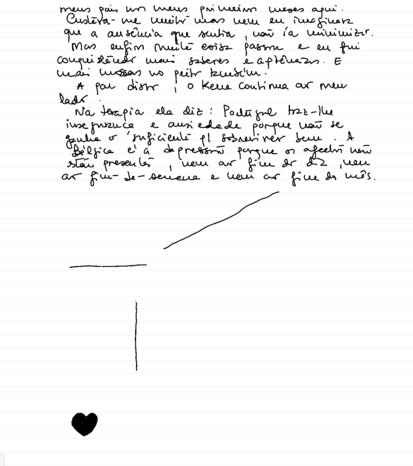 meus pais nos meus primeiros meses aqui.
Custava-me muito mas nem eu imaginava
que a ausência que sentia, não ia minimizar.
Mas enfim muita coisa passou e eu fui
conquistando mais saberes e
mais no peito também.
A par disto, o Kene continua ao meu
lado.
Na terapia ele diz: Portugal traz-lhe
insegurança e ansiedade porque não se
ganha o suficiente p/ sobreviver bem. A
Bélgica é a depressão porque os afectos não
estão presentes, nem ao fim do dia, nem
ao fim-de-semana e nem ao fim do mês.